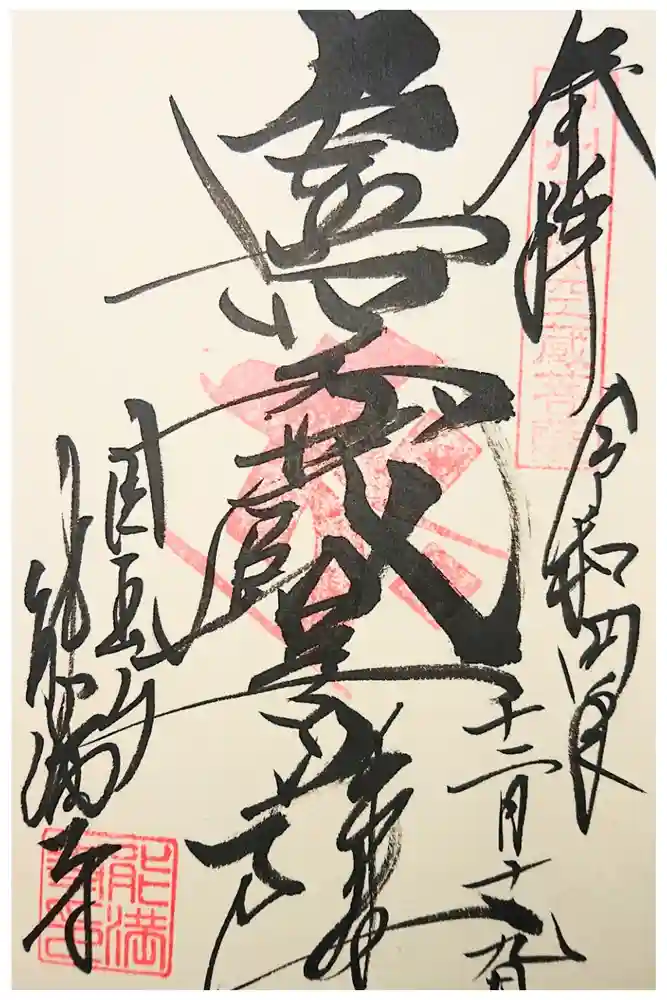 奉拝
令和四年
十二月十九日
虚空蔵菩薩
能満寺
空蔵菩薩
能満
寺印